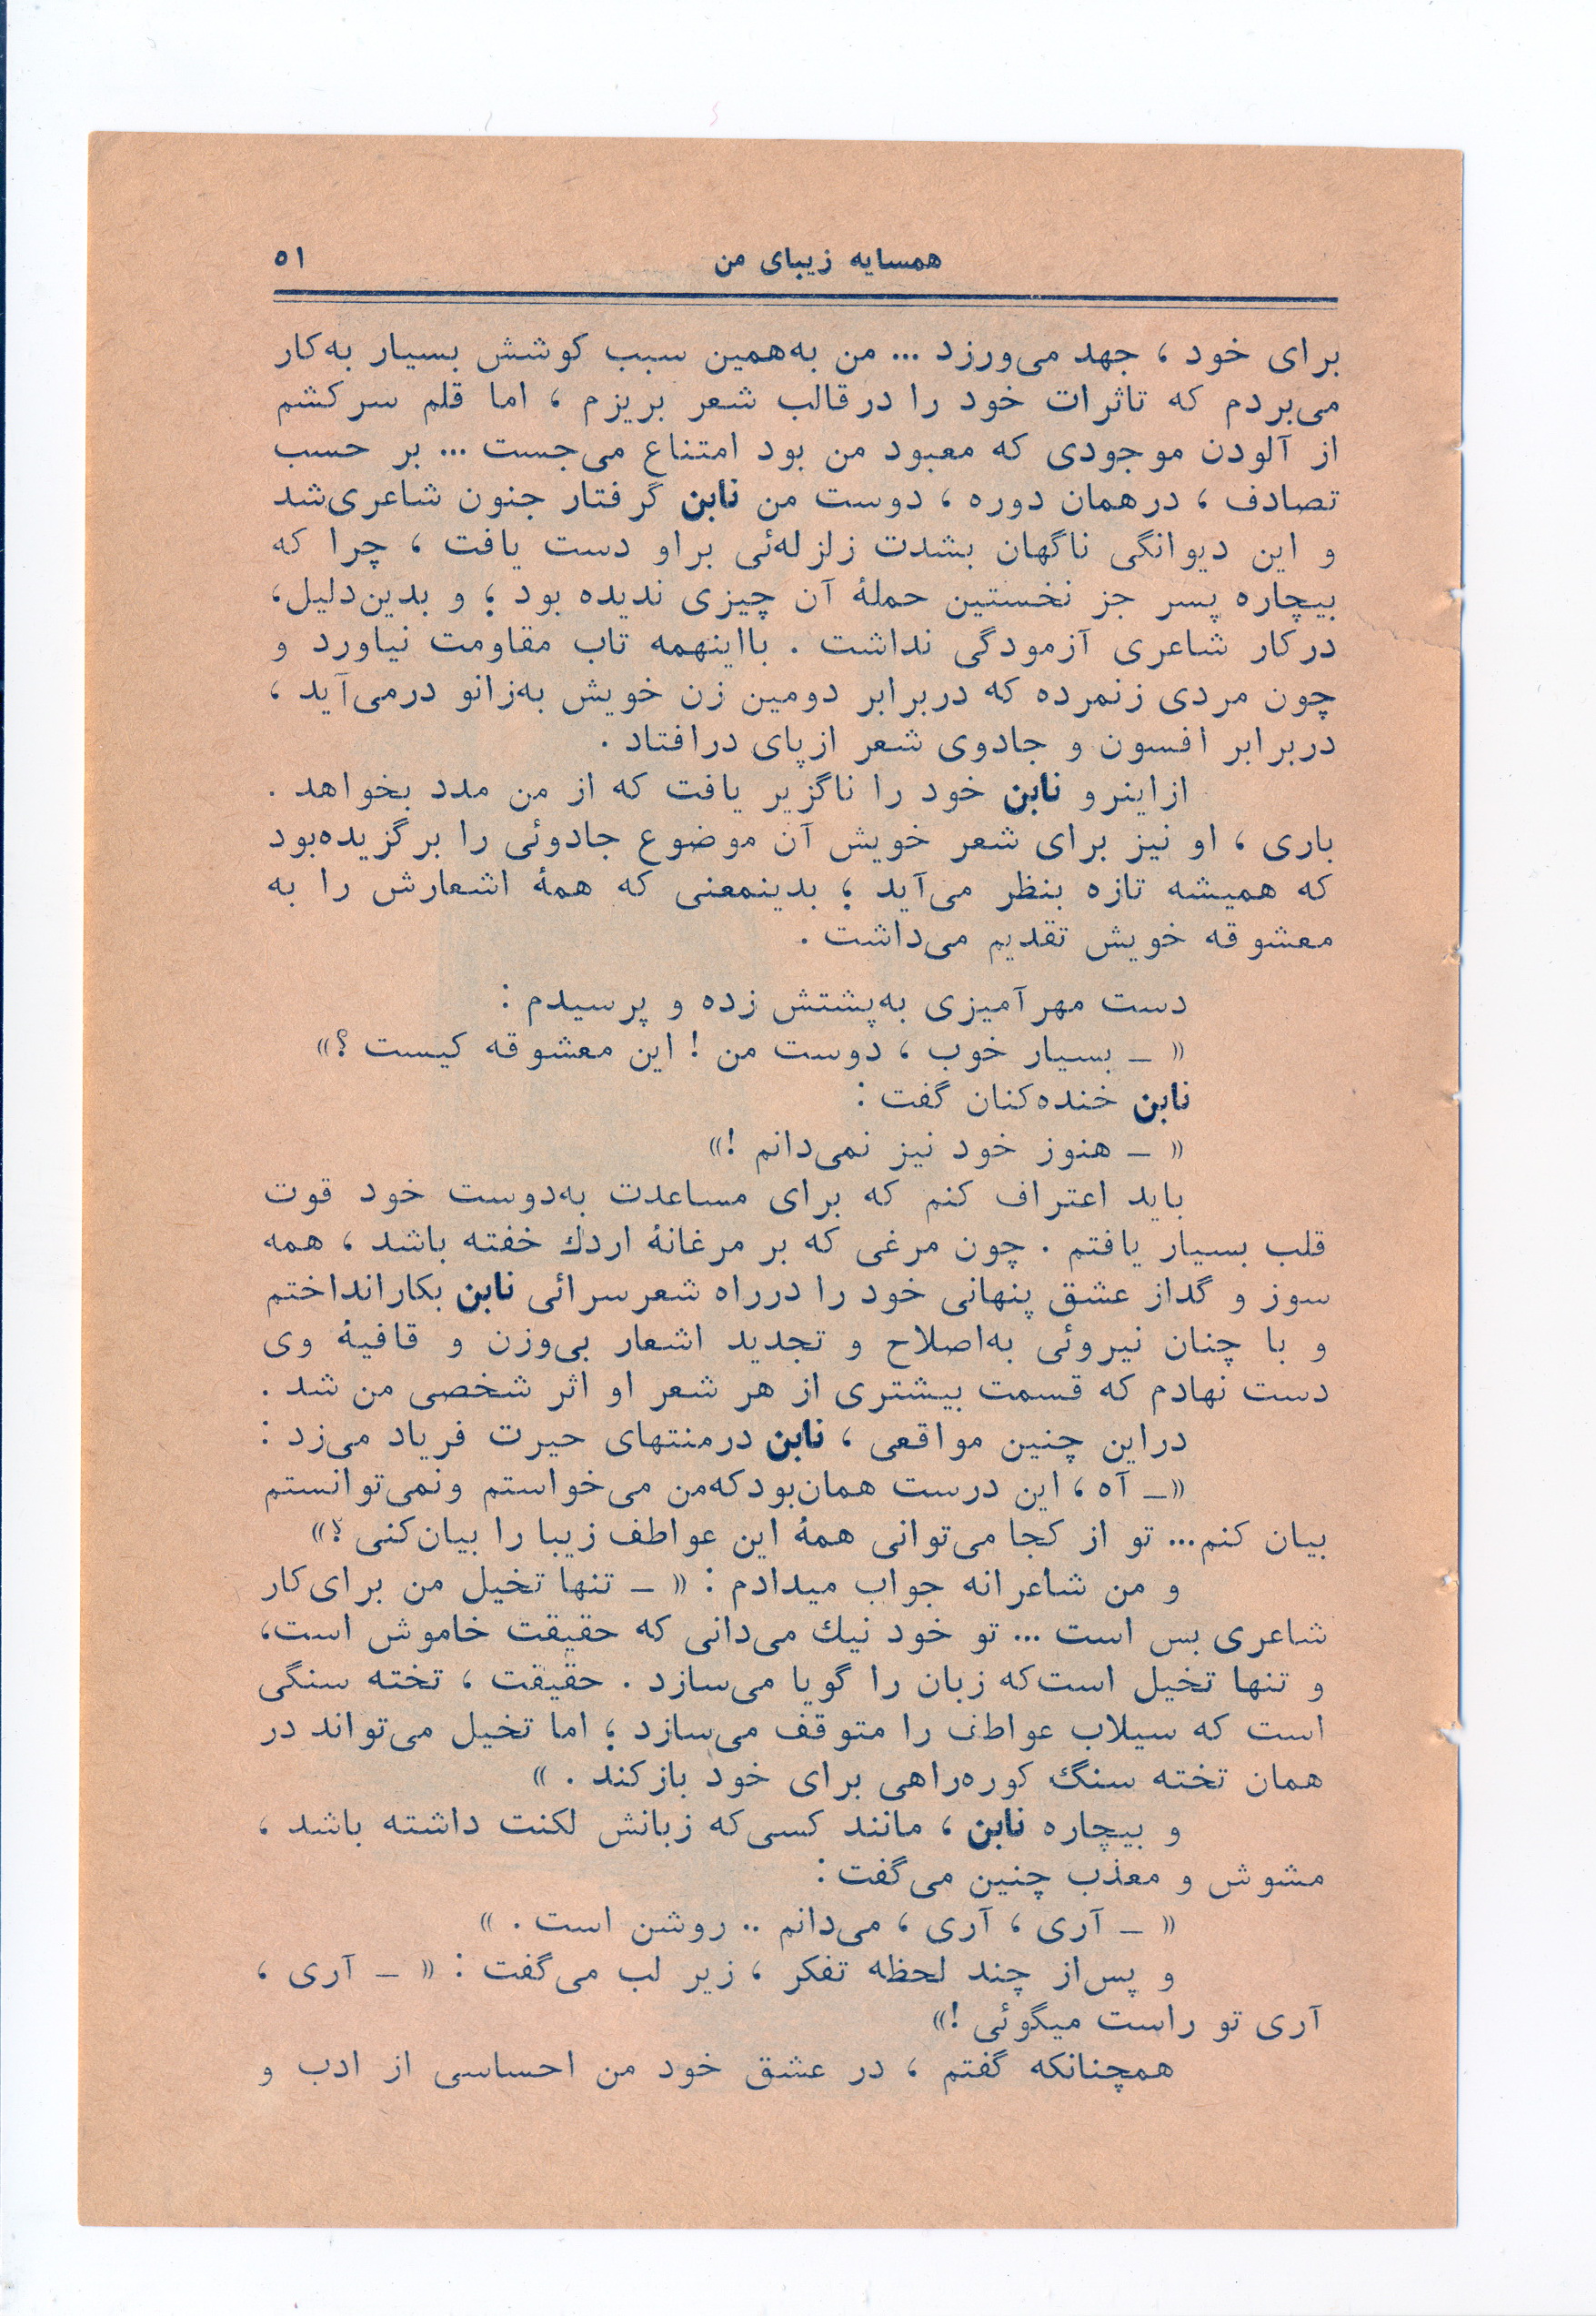 همسایه زیبای من ۵۱
برای خود ، جهد می‌ورزد ... من به‌همین سبب کوشش بسیار به‌کار
می‌بردم که تاثرات خود را درقالب شعر بریزم ، اما قلم سرکشم
از آلودن موجودی که معبود من بود امتناع می‌جست ... بر حسب
تصادف ، درهمان دوره ، دوست من نابن گرفتار جنون شاعری‌شد
و این دیوانگی ناگهان بشدت زلزله‌ئی براو دست یافت ، چرا که
بیچاره پسر جز نخستین حملهٔ آن چیزی ندیده بود ؛ و بدین‌دلیل،
درکار شاعری آزمودگی نداشت . بااینهمه تاب مقاومت نیاورد و
چون مردی زنمرده که دربرابر دومین زن خویش به‌زانو درمی‌آید ،
دربرابر افسون و جادوی شعر ازپای درافتاد .
ازاینرو نابن خود را ناگزیر یافت که از من مدد بخواهد .
باری ، او نیز برای شعر خویش آن موضوع جادوئی را برگزیده‌بود
که همیشه تازه بنظر می‌آید ؛ بدینمعنی که همهٔ اشعارش را به
معشوقه خویش تقدیم می‌داشت .
دست مهرآمیزی به‌پشتش زده و پرسیدم :
« ـ بسیار خوب ، دوست من ! این معشوقه کیست ؟»
نابن خنده‌کنان گفت :
« ـ هنوز خود نیز نمی‌دانم !»
باید اعتراف کنم که برای مساعدت به‌دوست خود قوت
قلب بسیار یافتم . چون مرغی که بر مرغانهٔ اردك خفته باشد ، همه
سوز و گداز عشق پنهانی خود را درراه شعرسرائی نابن بکارانداختم
و با چنان نیروئی به‌اصلاح و تجدید اشعار بی‌وزن و قافیهٔ وی
دست نهادم که قسمت بیشتری از هر شعر او اثر شخصی من شد .
دراین چنین مواقعی ، نابن درمنتهای حیرت فریاد می‌زد :
«ـ آه ، این درست همان‌بودکه‌من می‌خواستم ونمی‌توانستم
بیان کنم... تو از کجا می‌توانی همهٔ این عواطف زیبا را بیان‌کنی ؟»
و من شاعرانه جواب میدادم : « ـ تنها تخیل من برای‌کار
شاعری بس است ... تو خود نیك می‌دانی که حقیقت خاموش است،
و تنها تخیل است‌که زبان را گویا می‌سازد . حقیقت ، تخته سنگی
است که سیلاب عواطف را متوقف می‌سازد ؛ اما تخیل می‌تواند در
همان تخته سنگ کوره‌راهی برای خود بازکند . »
و بیچاره نابن ، مانند کسی‌که زبانش لکنت داشته باشد ،
مشوش و معذب چنین می‌گفت :
« ـ آری ، آری ، می‌دانم .. روشن است . »
و پس‌از چند لحظه تفکر ، زیر لب می‌گفت : « ـ آری ،
آری تو راست میگوئی !»
همچنانکه گفتم ، در عشق خود من احساسی از ادب و